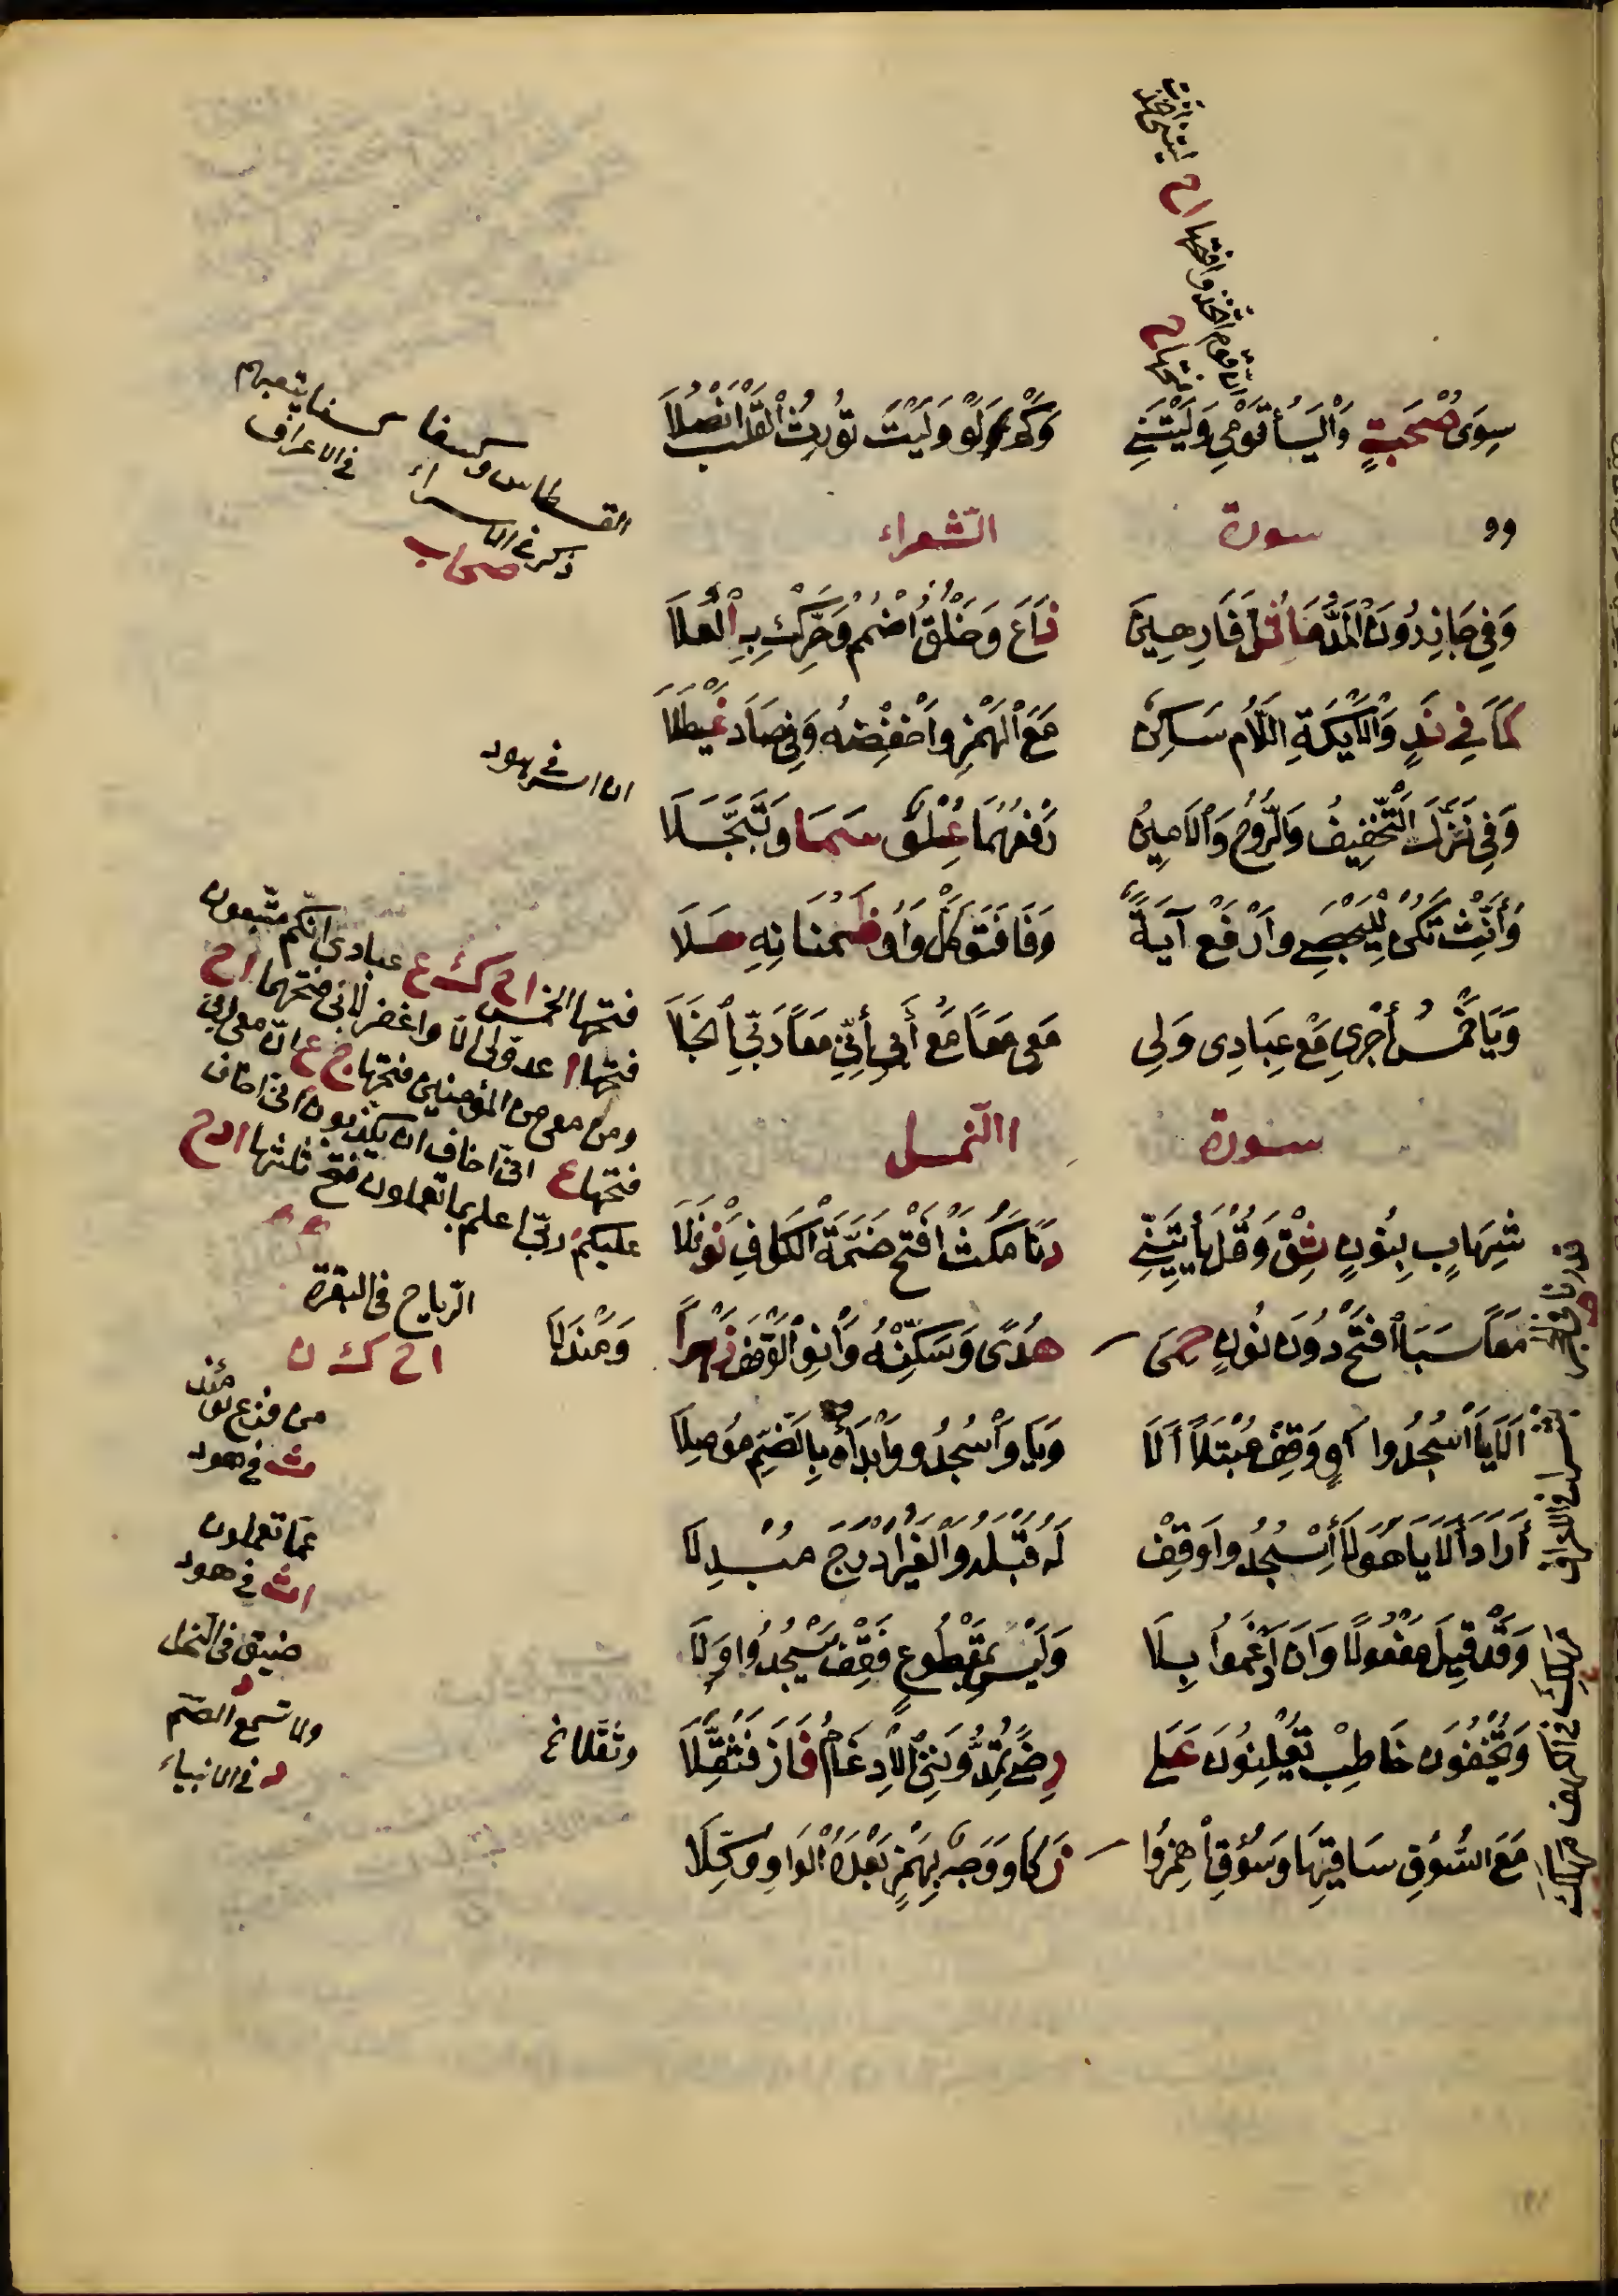 سِوَى صُحْبَةٍ وَالْيَاءُ قَوْمِي وَلَيْتَنِي وَكَمْ لَوْ وَلَيْتَ تُورِثُ الْقَلْبَ أَنْصُلَا
سورة الشعراء
وَفِي حَاذِرُونَ الْمَدُّ مَا ثُلَّ فَارِهِينَ ذَاعَ وَخَلْقُ اضْمُمْ وَحَرِّكْ بِهِ الْعُلَا
كَمَا فِي نَدٍ وَالْأَيْكَةِ اللَّامُ سَاكِنٌ مَعَ الْهَمْزِ وَاخْفِضْهُ وَفِي صَادَ غَيْطَلَا
وَفِي نَزَّلَ التَّخْفِيفُ وَالرُّوحُ وَالْأَمِينُ رَفْعُهُمَا عُلْوٌ سَمَا وَتَبَجَّلَا
وَأَنِّثْ تَكُنْ لِلْيَحْصَبِي وَارْفَعْ آيَةً وَفَا فَتَوَكَّلْ وَاوُ ظَمْآنِهِ حَلَا
وَيَا خَمْسُ أَجْرِي مَعْ عِبَادِي وَلِي مَعِي مَعًا مَعْ أَبِي إِنِّي مَعًا رَبِّي انْجَلَا
سورة النمل
شِهَابٍ بِنُونٍ ثِقْ وَقُلْ يَأْتِيَنِّي دَنَا مَكُثَ افْتَحْ ضَمَّةَ الْكَافِ نَوْفَلَا
مَعًا سَبَأَ افْتَحْ دُونَ نُونٍ حِمًى هُدًى وَسَكِّنْهُ وَانْوِ الْوَقْفَ زُهْرًا وَمَنْدَلَا
أَلَا يَا اسْجُدُوا رَاوٍ وَقِفْ مُبْتَلًا أَلَا وَيَا وَاسْجُدُوا وَابْدَأْهُ بِالضَّمِّ مُوصِلَا
أَرَادَ أَلَا يَا هَؤُلَاءِ اسْجُدُوا وَقِفْ لَهُ قَبْلَهُ وَالْغَيْرُ أَدْرَجَ مُبْدِلَا
وَقَدْ قِيلَ مَفْعُولًا وَأَنْ أَدْغَمُوا بِلَا وَلَيْسَ بِمَقْطُوعٍ فَقِفْ يَسْجُدُوا وَلَا
وَيُخْفُونَ خَاطِبْ يُعْلِنُونَ عَلَى رِضًى تُمِدُّونَنِي الْإِدْغَامُ فَازَ فَثَقَّلَا
مَعَ السُّوقِ سَاقَيْهَا وَسُوقِ اهْمِزُوا زَكَا وَوَجْهٌ بِهَمْزٍ بَعْدَهُ الْوَاوُ وُكِّلَا
القسطاس وكسفا كسفا
ذكر في الاسراء في الاعراف
صحاب
ان اسر في هود
فتحها الخمس اح ك ع عبادي انكم متبعون
فتحها ا عدو لي الا واغفر لابي فتحهما اح
ومن معي من المؤمنين فتحها ج ع ان معي ربي
فتحها ع اني اخاف ان يكذبون اني اخاف
عليكم ربي اعلم بما تعملون فتح ثلثها ا د ح
الرياح في البقرة
اح ك ن
من فزع يومئذ
ث في هود
عما تعملون
في هود
ضيق في النحل
د
ولا تسمع الصم
في الانبياء